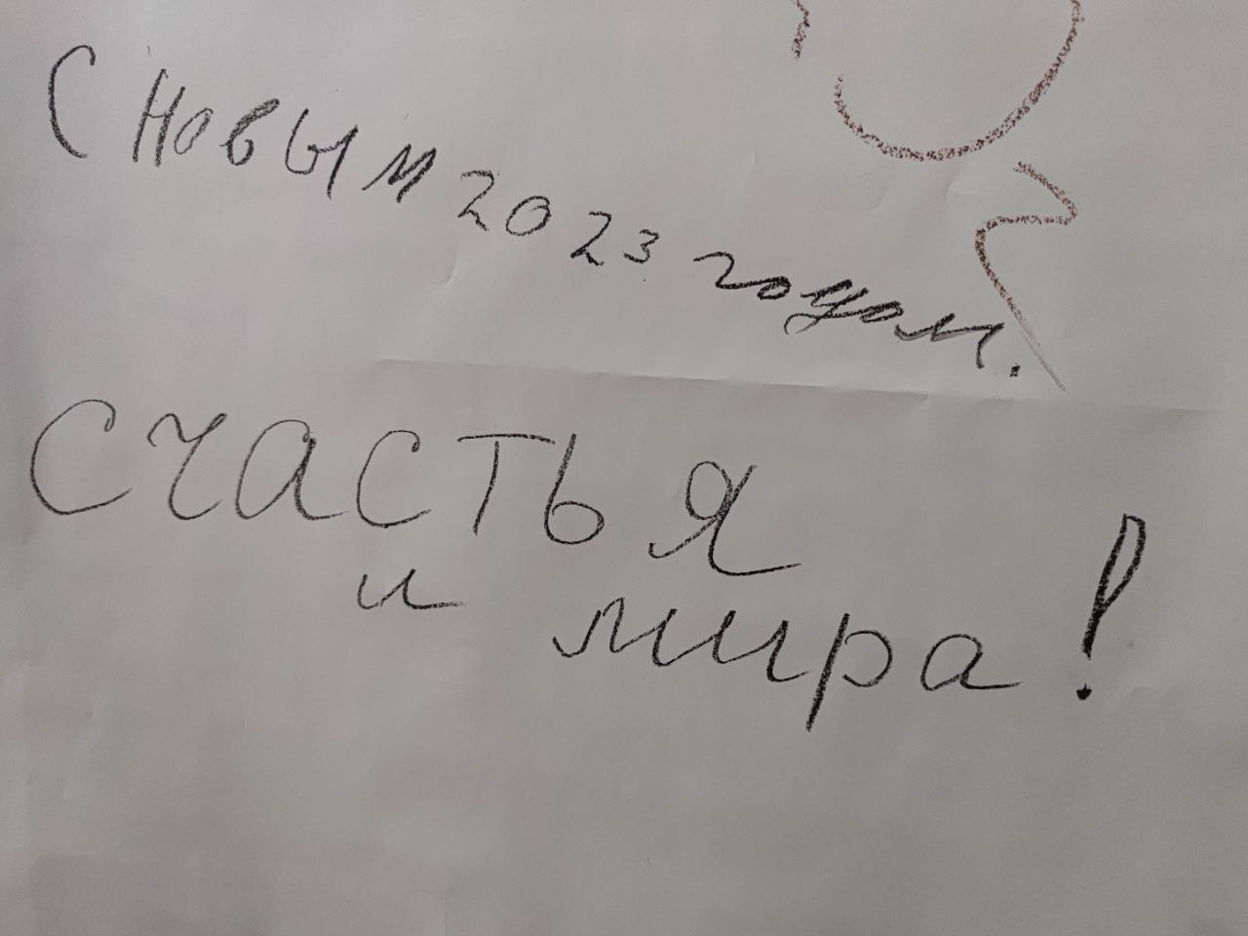 С Новым 2023 годом.
Счастья
и мира!